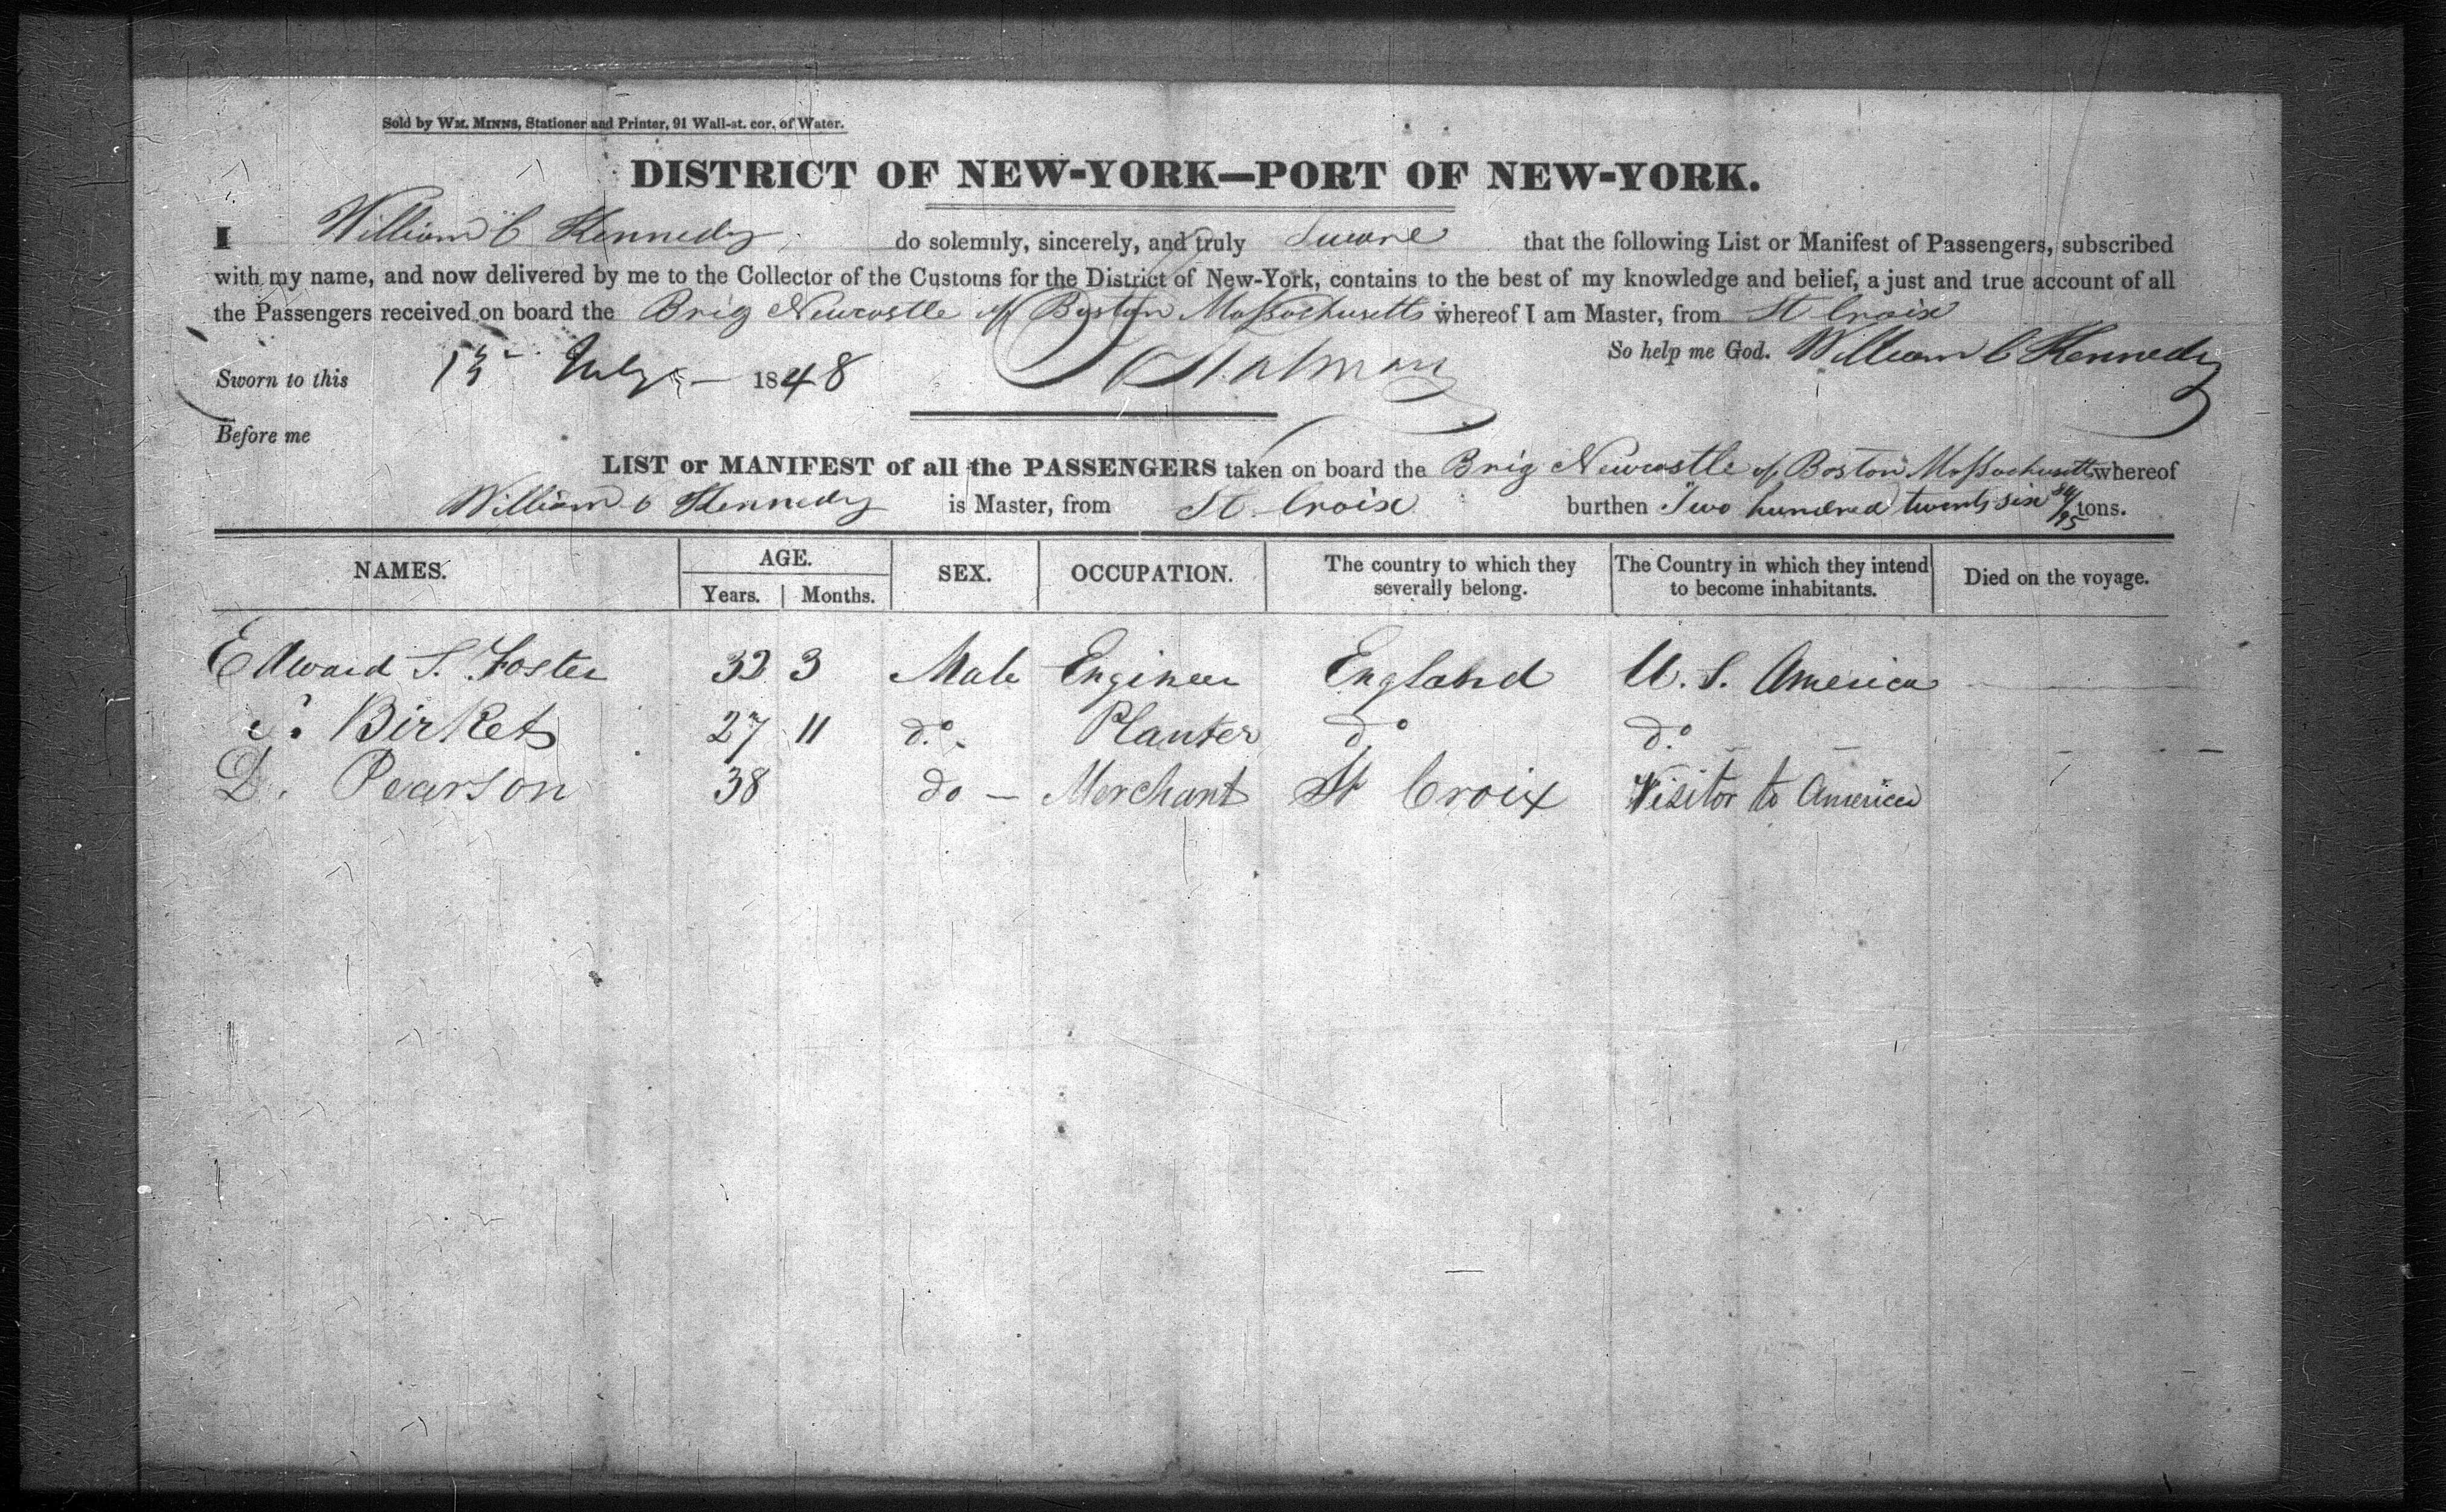 Sold by WM. MINNS, Stationer and Printer, 91 Wall-st. cor. of Water.
DISTRICT OF NEW-YORK—PORT OF NEW-YORK.
I William C Kennedy do solemnly, sincerely, and truly Sware that the following List or Manifest of Passengers, subscribed
with my name, and now delivered by me to the Collector of the Customs for the District of New-York, contains to the best of my knowledge and belief, a just and true account of all
the Passengers received on board the Brig Newcastle of Boston Massachusetts whereof I am Master, from St Croix
So help me God. William C Kennedy
Sworn to this 13 July 1848
Before me
LIST or MANIFEST of all the PASSENGERS taken on board the Brig Newcastle of Boston Massachusetts whereof
William C Kennedy is Master, from St. Croix burthen Two hundred twenty six 84/95 tons.
NAMES. AGE. SEX. OCCUPATION. The country to which they severally belong. The Country in which they intend to become inhabitants. Died on the voyage.
Years. Months.
Edward S. Foster 33 3 Male Engineer England U. S. America
Birket 27 11 do. Planter do do.
D. Pearson 38 do — Merchant St Croix Visitor to America